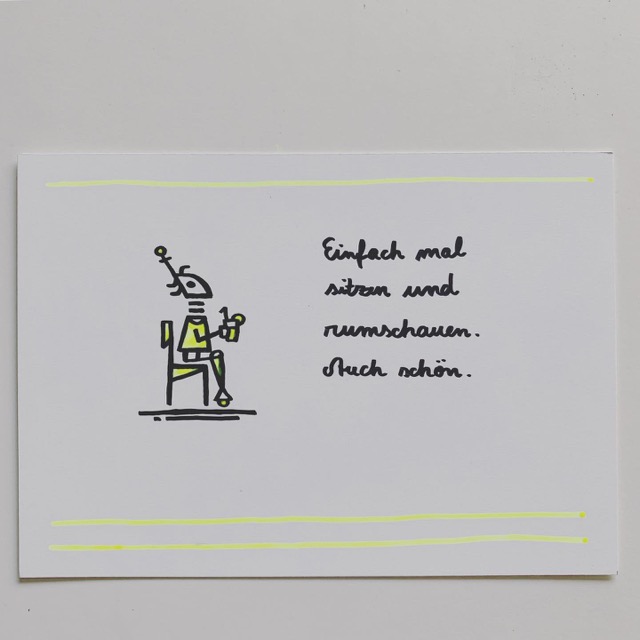 Einfach mal
sitzen und
rumschauen.
Auch schön.